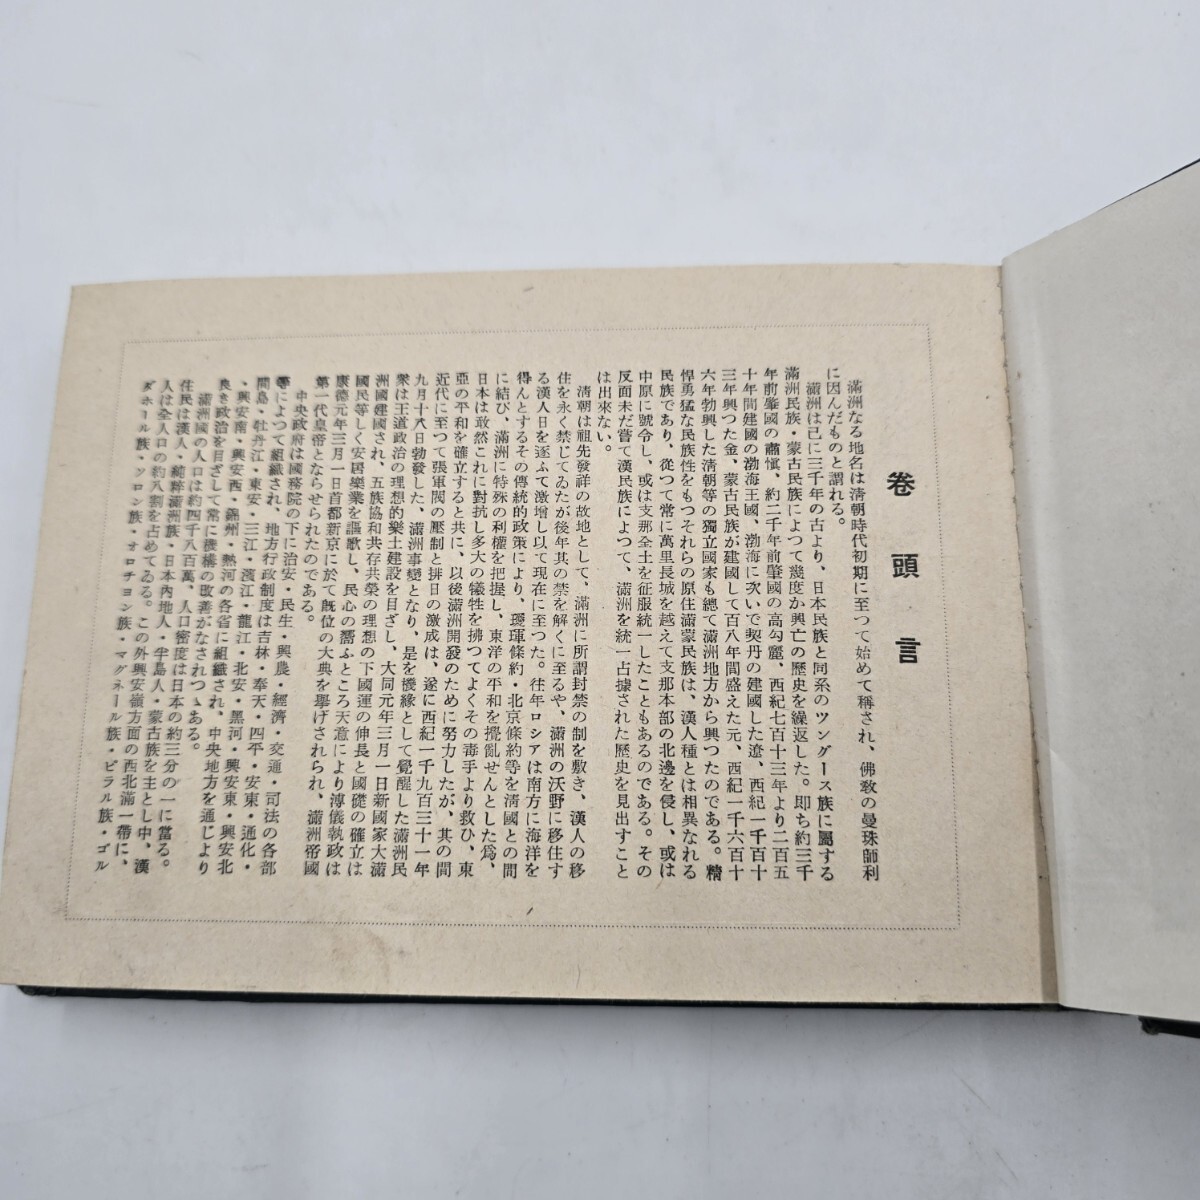 卷頭言
滿洲なる地名は淸朝時代初期に至つて始めて稱され、佛敎の曼珠師利
に因んだものと謂れる。
滿洲は已に三千年の古より、日本民族と同系のツングース族に屬する
滿洲民族・蒙古民族によつて幾度か興亡の歷史を繰返した。卽ち約三千
年前肇國の肅愼、約二千年前肇國の高勾麗、西紀七百十三年より二百五
十年間建國の渤海王國、渤海に次いで契丹の建國した遼、西紀一千百十
三年興つた金、蒙古民族が建國して百八年間盛えた元、西紀一千六百十
六年勃興した淸朝等の獨立國家も總て滿洲地方から興つたのである。精
悍勇猛な民族性をもつそれらの原住滿蒙民族は、漢人種とは相異なれる
民族であり、從つて常に萬里長城を越えて支那本部の北邊を侵し、或は
中原に號令し、或は支那全土を征服統一したこともあるのである。その
反面未だ嘗て漢民族によつて、滿洲を統一占據された歷史を見出すこと
は出來ない。
淸朝は祖先發祥の故地として、滿洲に所謂封禁の制を敷き、漢人の移
住を永く禁じてゐたが後年其の禁を解くに至るや、滿洲の沃野に移住す
る漢人日を逐ふて激增し以て現在に至つた。往年ロシアは南方に海洋を
得んとするその傳統的政策により、璦琿條約・北京條約等を淸國との間
に結び、滿洲に特殊の利權を把握し、東洋の平和を攪亂せんとした爲、
日本は敢然これに對抗し多大の犧牲を拂つてよくその毒手より救ひ、東
亞の平和を確立すると共に、以後滿洲開發のために努力したが、其の間
近代に至つて張軍閥の壓制と排日の激成は、遂に西紀一千九百三十一年
九月十八日勃發した、滿洲事變となり、是を機緣として覺醒した滿洲民
衆は王道政治の理想的樂土建設を目ざし、大同元年三月一日新國家大滿
洲國建國され、五族協和共存共榮の理想の下國運の伸長と國礎の確立は
國民等しく安居樂業を謳歌し、民心の嚮ふところ天意により溥儀執政は
康德元年三月一日首都新京に於て旣位の大典を擧げされられ、滿洲帝國
第一代皇帝とならせられたのである。
中央政府は國務院の下に治安・民生・興農・經濟・交通・司法の各部
等によつて組織され、地方行政制度は吉林・奉天・四平・安東・通化・
間島・牡丹江・東安・三江・濱江・龍江・北安・黑河・興安東・興安北
・興安南・興安西・錦州・熱河の各省に組織され、中央地方を通じより
良き政治を目ざして常に機構の改善がなされつゝある。
滿洲國の人口は約四千八百萬、人口密度は日本の約三分の一に當る。
住民は漢人・純粹滿洲族・日本內地人・半島人・蒙古族を主とし中、漢
人は全人口の約八割を占めてゐる。この外興安嶺方面の西北滿一帶に、
ダホール族・ソロン族・オロチヨン族・マグネール族・ビラル族・ゴル